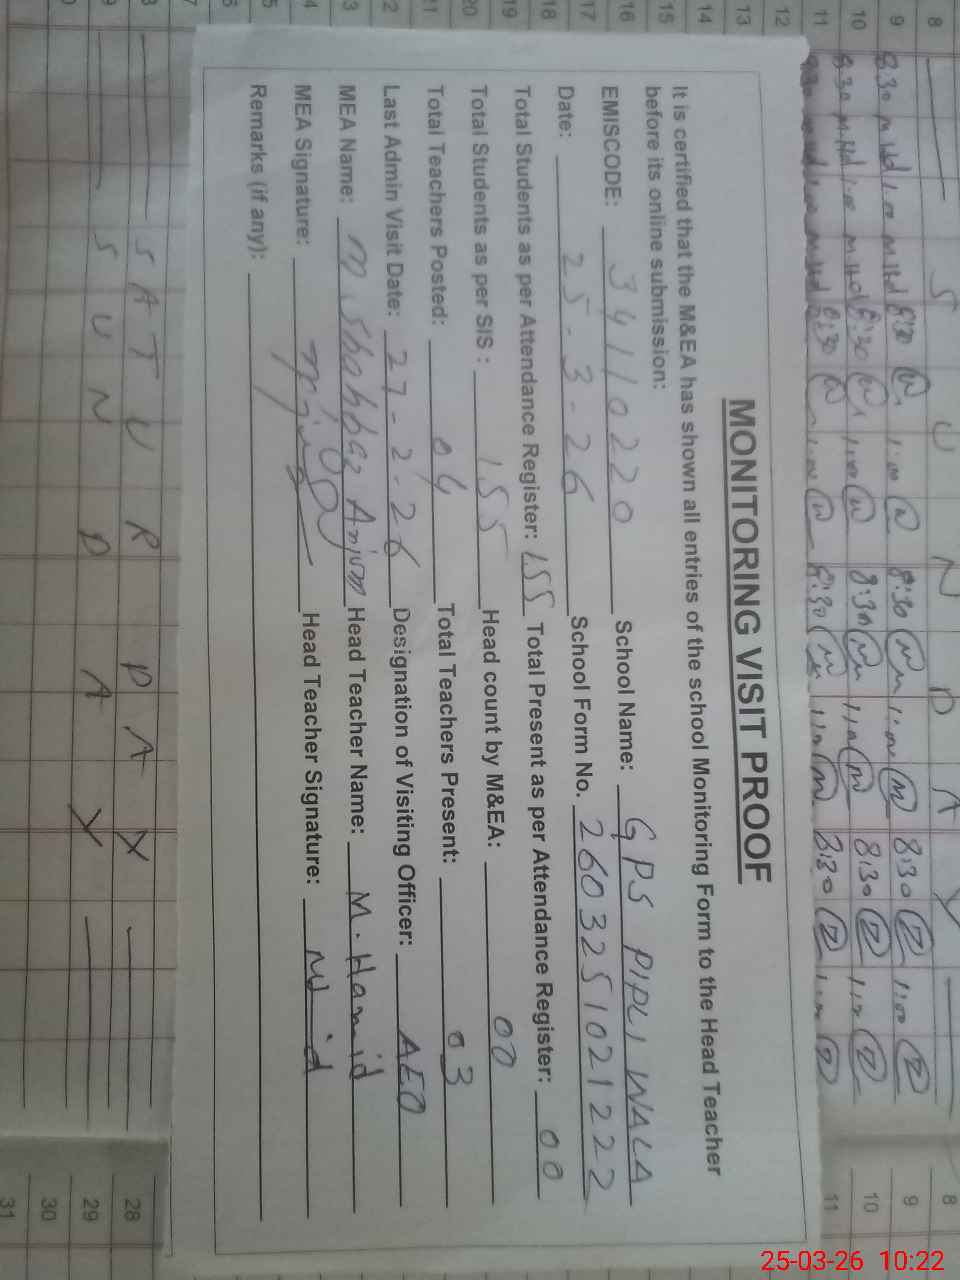 MONITORING VISIT PROOF
It is certified that the M&EA has shown all entries of the school Monitoring Form to the Head Teacher
before its online submission:
EMISCODE: 34110220 School Name: GPS PIPLI WALA
Date: 25-3-26 School Form No. 2603251021222
Total Students as per Attendance Register: 155 Total Present as per Attendance Register: 00
Total Students as per SIS : 155 Head count by M&EA: 00
Total Teachers Posted: 04 Total Teachers Present: 03
Last Admin Visit Date: 27-2-26 Designation of Visiting Officer: AEO
MEA Name: M Shahbaz Anjum Head Teacher Name: M. Hamid
MEA Signature: Head Teacher Signature:
Remarks (if any):
8 SUNDAY 8
9 8:30 8:30 1:00 8:30 1:00 8:30 1:00 9
10 8:30 8:30 1:00 8:30 8:30 10
11 8:30 8:30 8:30 11
12
13
14
15
16
17
18
19
20
21
22
23
24
25
26
27
28 SATURDAY 28
29 SUNDAY 29
30
31
25-03-26 10:22